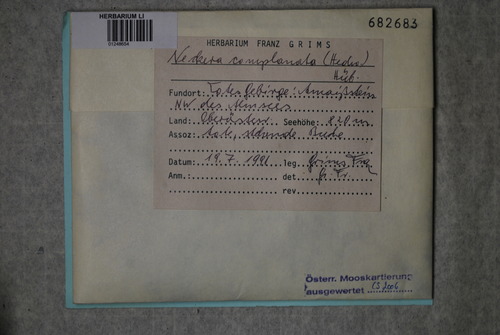 HERBARIUM LI
682683
HERBARIUM FRANZ GRIMS
Neckera complanata (Hedw.)
Hüb.
Fundort: Totes Gebirge:
NW des
Land: Oberösterr. Seehöhe: 820 m
Assoz:
Datum: 19.7.1981 leg. Grims Franz
Anm.: det. Gr. Fr.
rev.
Österr. Mooskartierung
ausgewertet CS 2006